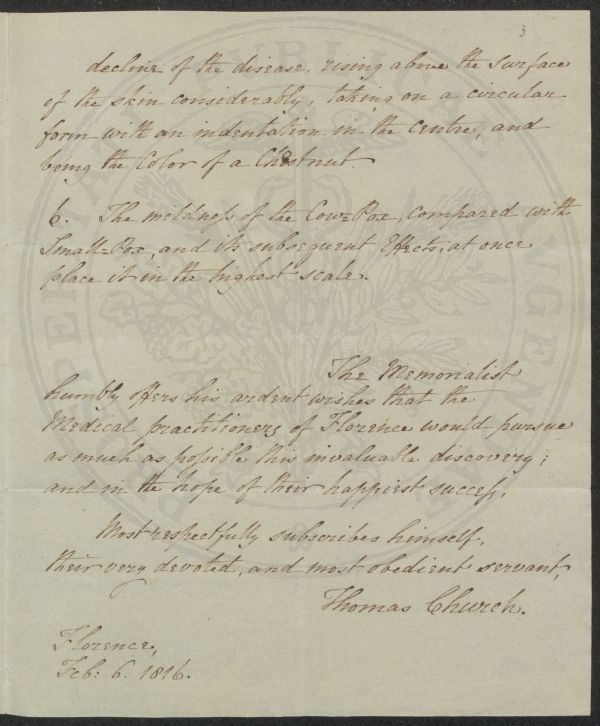 3
decline of the disease, rising above the surface
of the skin considerably, taking on a circular
form with an indentation in the centre, and
being the Color of a Chestnut.
6. The mildness of the Cow=Pox, compared with
Small=Pox, and its subsequent Effects, at once
place it in the highest scale.
The Memorialist
humbly offers his ardent wishes that the
Medical practitioners of Florence would pursue
as much as possible this invaluable discovery;
and in the hope of their happiest success,
Most respectfully subscribes himself,
their very devoted, and most obedient servant,
Thomas Church.
Florence,
Feb: 6. 1816.